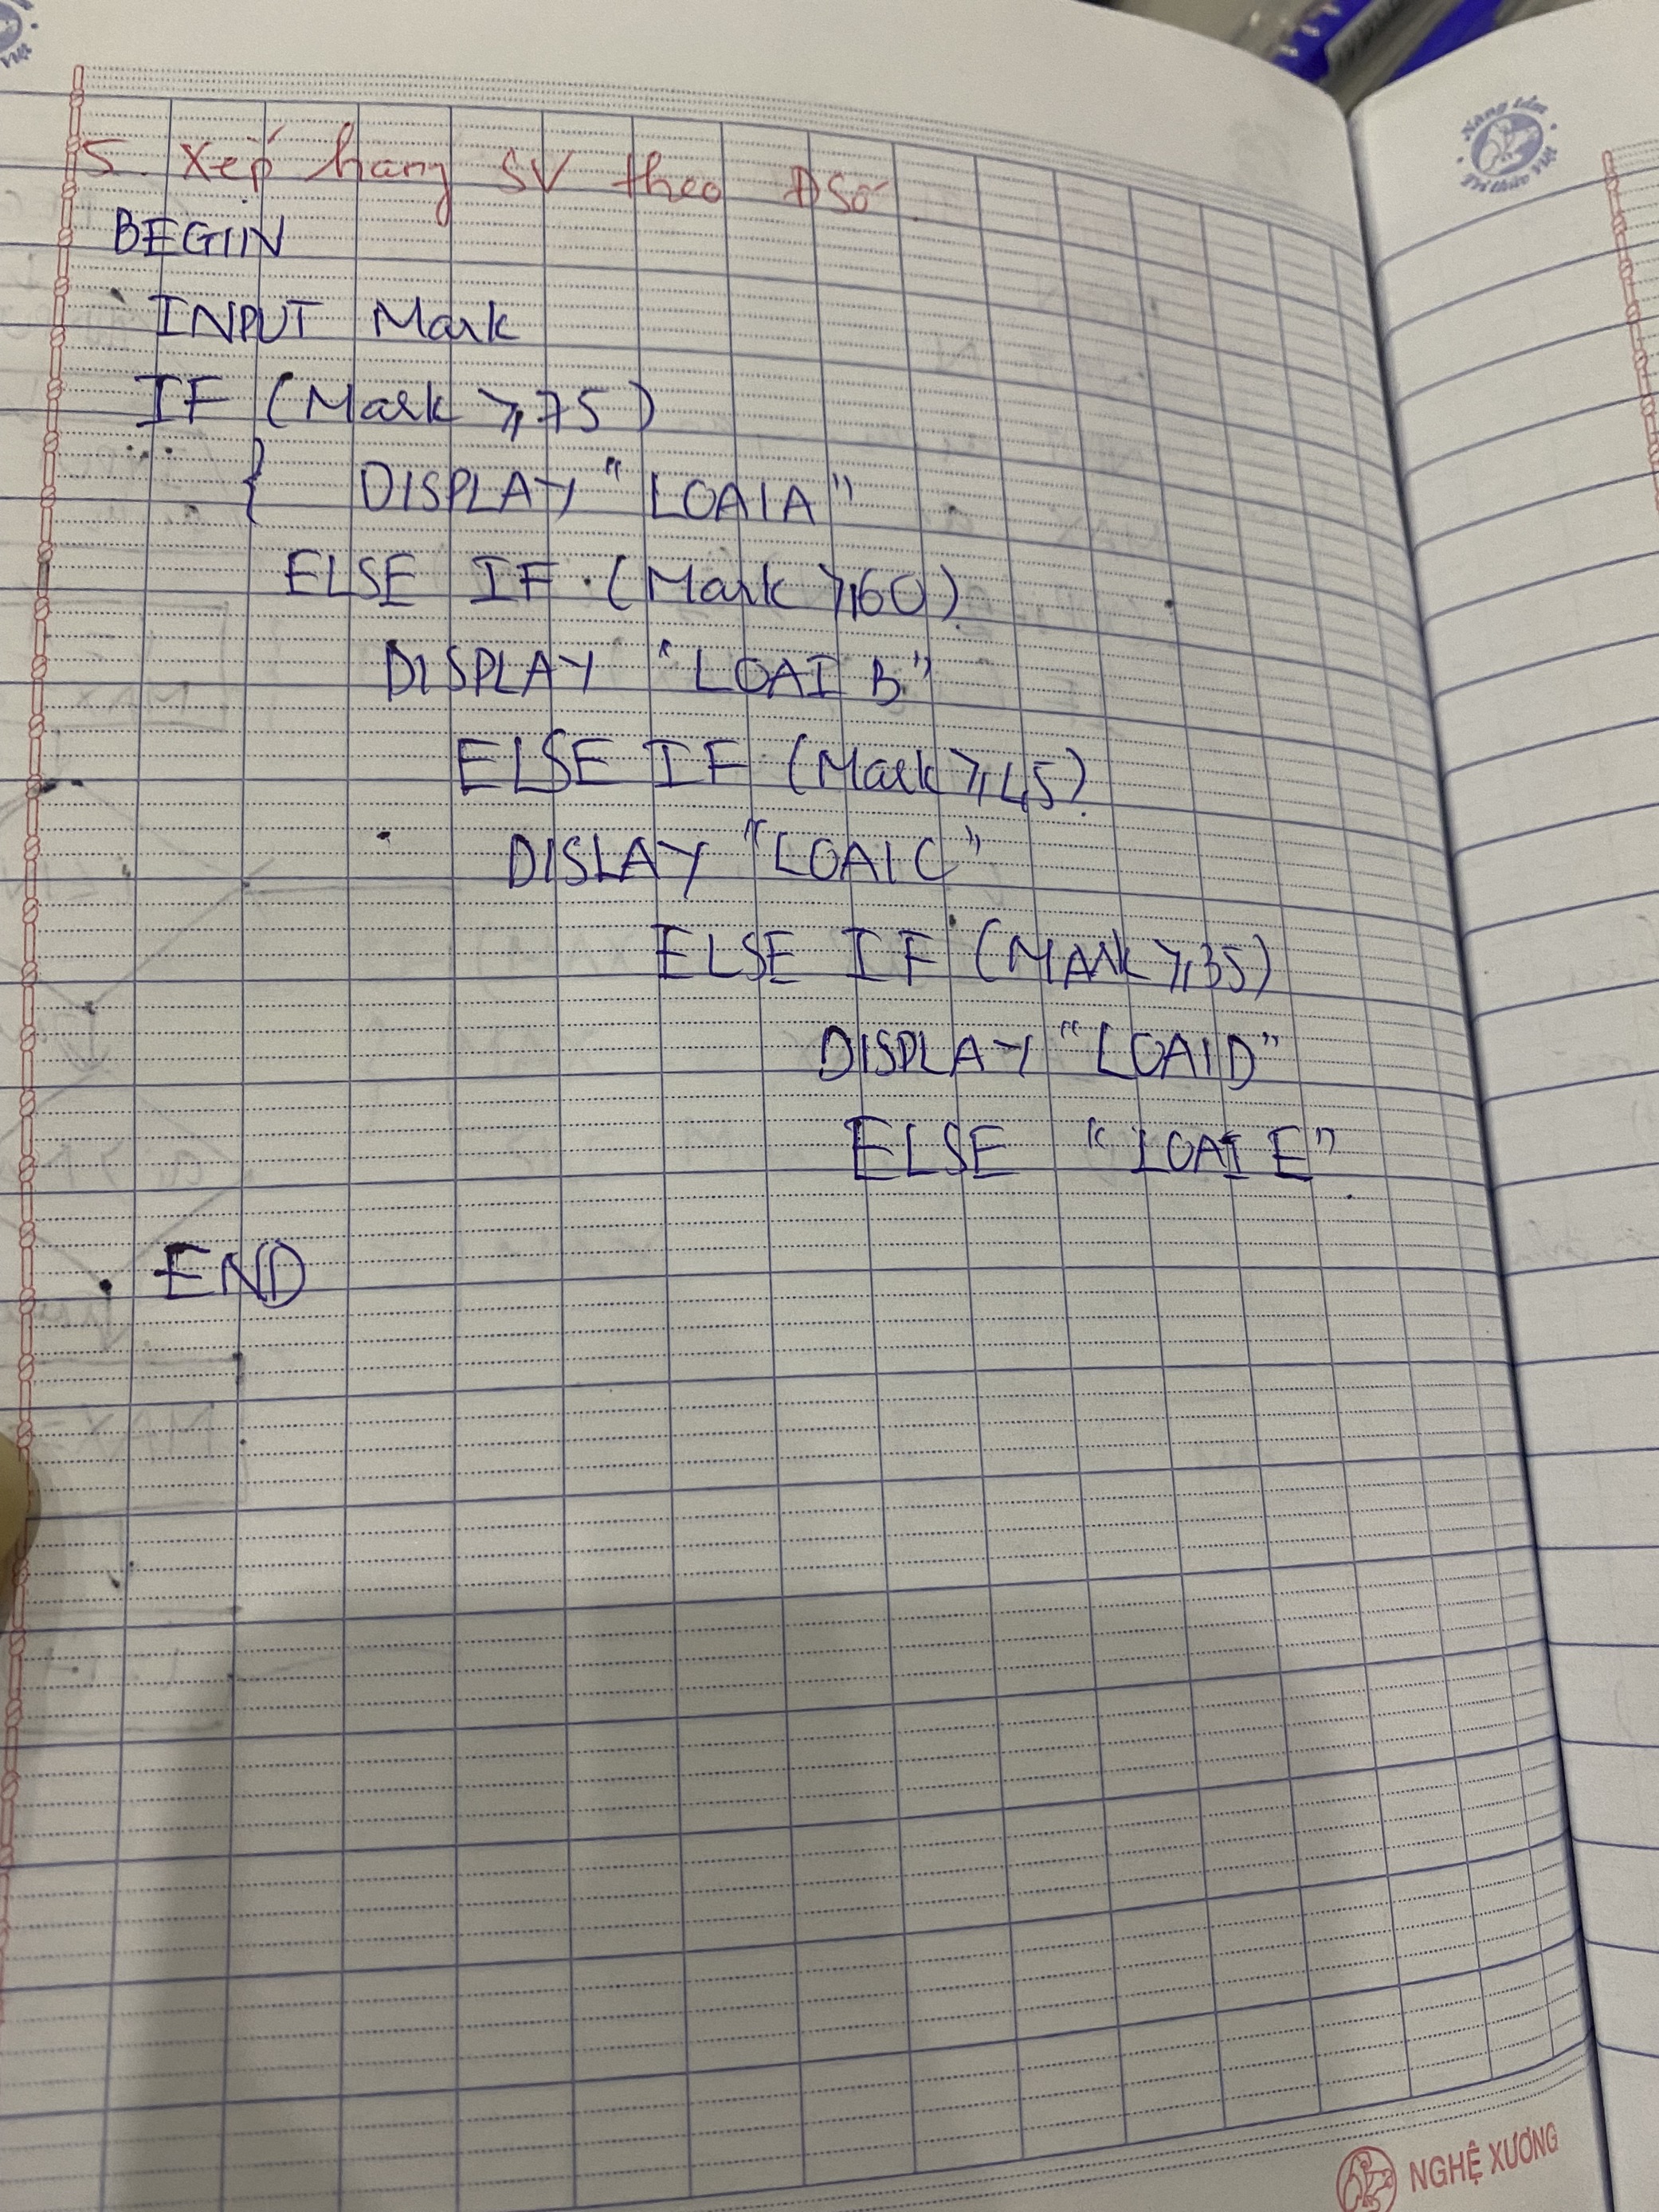 5. Xếp hạng SV theo Đsố.
BEGIN
INPUT Mark
IF (Mark ≥ 75)
{ DISPLAY "LOAIA"
ELSE IF (Mark ≥ 60)
DISPLAY "LOAI B"
ELSE IF (Mark ≥ 45)
DISLAY "LOAIC"
ELSE IF (MARk ≥ 35)
DISPLAY "LOAID"
ELSE "LOAI E".
END
Nâng tầm
Tri thức Việt
NGHỆ XƯƠNG